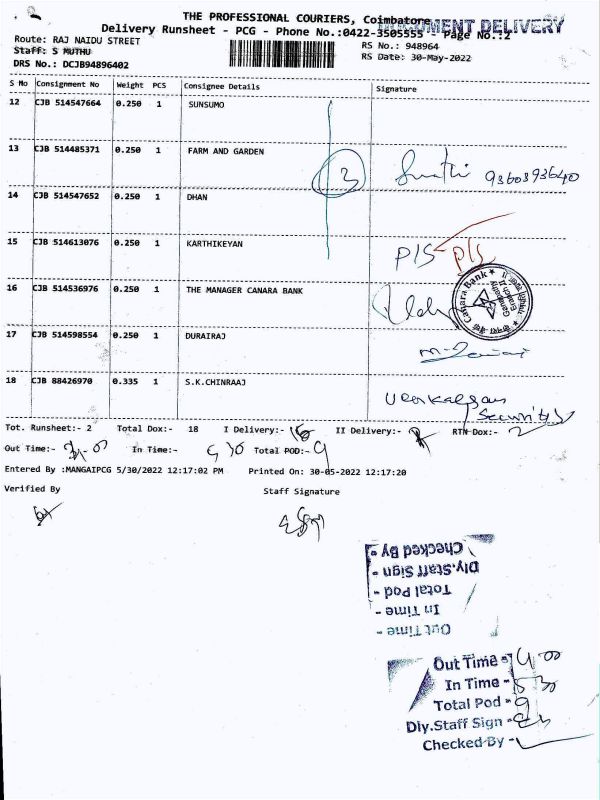 THE PROFESSIONAL COURIERS, Coimbatore
DOCUMENT DELIVERY
Delivery Runsheet - PCG - Phone No.:0422-3505555 - Page No.:2
Route: RAJ NAIDU STREET
RS No.: 948964
Staff: S MUTHU
RS Date: 30-May-2022
DRS No.: DCJB94896402
S No Consignment No Weight PCS Consignee Details Signature
12 CJB 514547664 0.250 1 SUNSUMO
13 CJB 514485371 0.250 1 FARM AND GARDEN
3
9360393640
14 CJB 514547652 0.250 1 DHAN
15 CJB 514613076 0.250 1 KARTHIKEYAN
P/S P/S
16 CJB 514536976 0.250 1 THE MANAGER CANARA BANK
Canara Bank
17 CJB 514598554 0.250 1 DURAIRAJ
18 CJB 88426970 0.335 1 S.K.CHINRAAJ
Security
Tot. Runsheet:- 2 Total Dox:- 18 I Delivery:- 16 II Delivery:- RTN Dox:- 2
Out Time:- In Time:- Total POD:- 9
Entered By :MANGAIPCG 5/30/2022 12:17:02 PM Printed On: 30-05-2022 12:17:20
Verified By Staff Signature
Checked By -
Dly.Staff Sign -
Total Pod -
In Time -
Out Time -
Out Time - 4 00
In Time - 5 30
Total Pod - 9
Dly.Staff Sign -
Checked By -